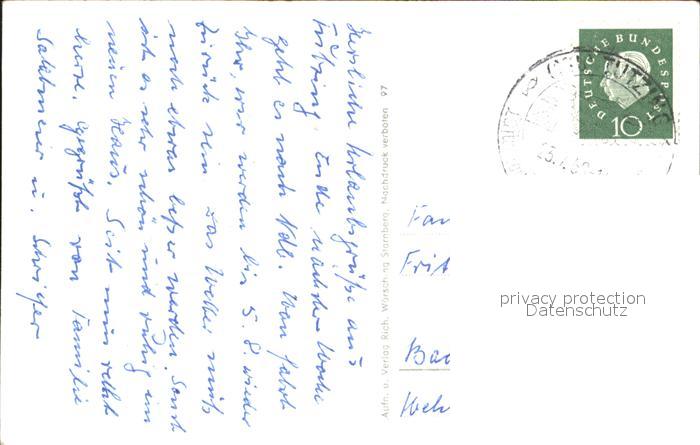 Herzliche Urlaubsgrüße aus
Tutzing. Ende nächster Woche
geht es nach Ndb. Wann fahrt
Ihr, wir werden bis 5.8. wieder
zurück sein das Wetter muß
noch etwas besser werden. Sonst
ist es sehr schön und ruhig im
neuen Haus. Seit nun recht
herzl. gegrüßt von Familie
u.
Aufn. u. Verlag Rich. Wörsching Starnberg, Nachdruck verboten 97
DEUTSCHE BUNDESPOST
10
TUTZING
Fam
Frit
Bad
Weh
privacy protection
Datenschutz